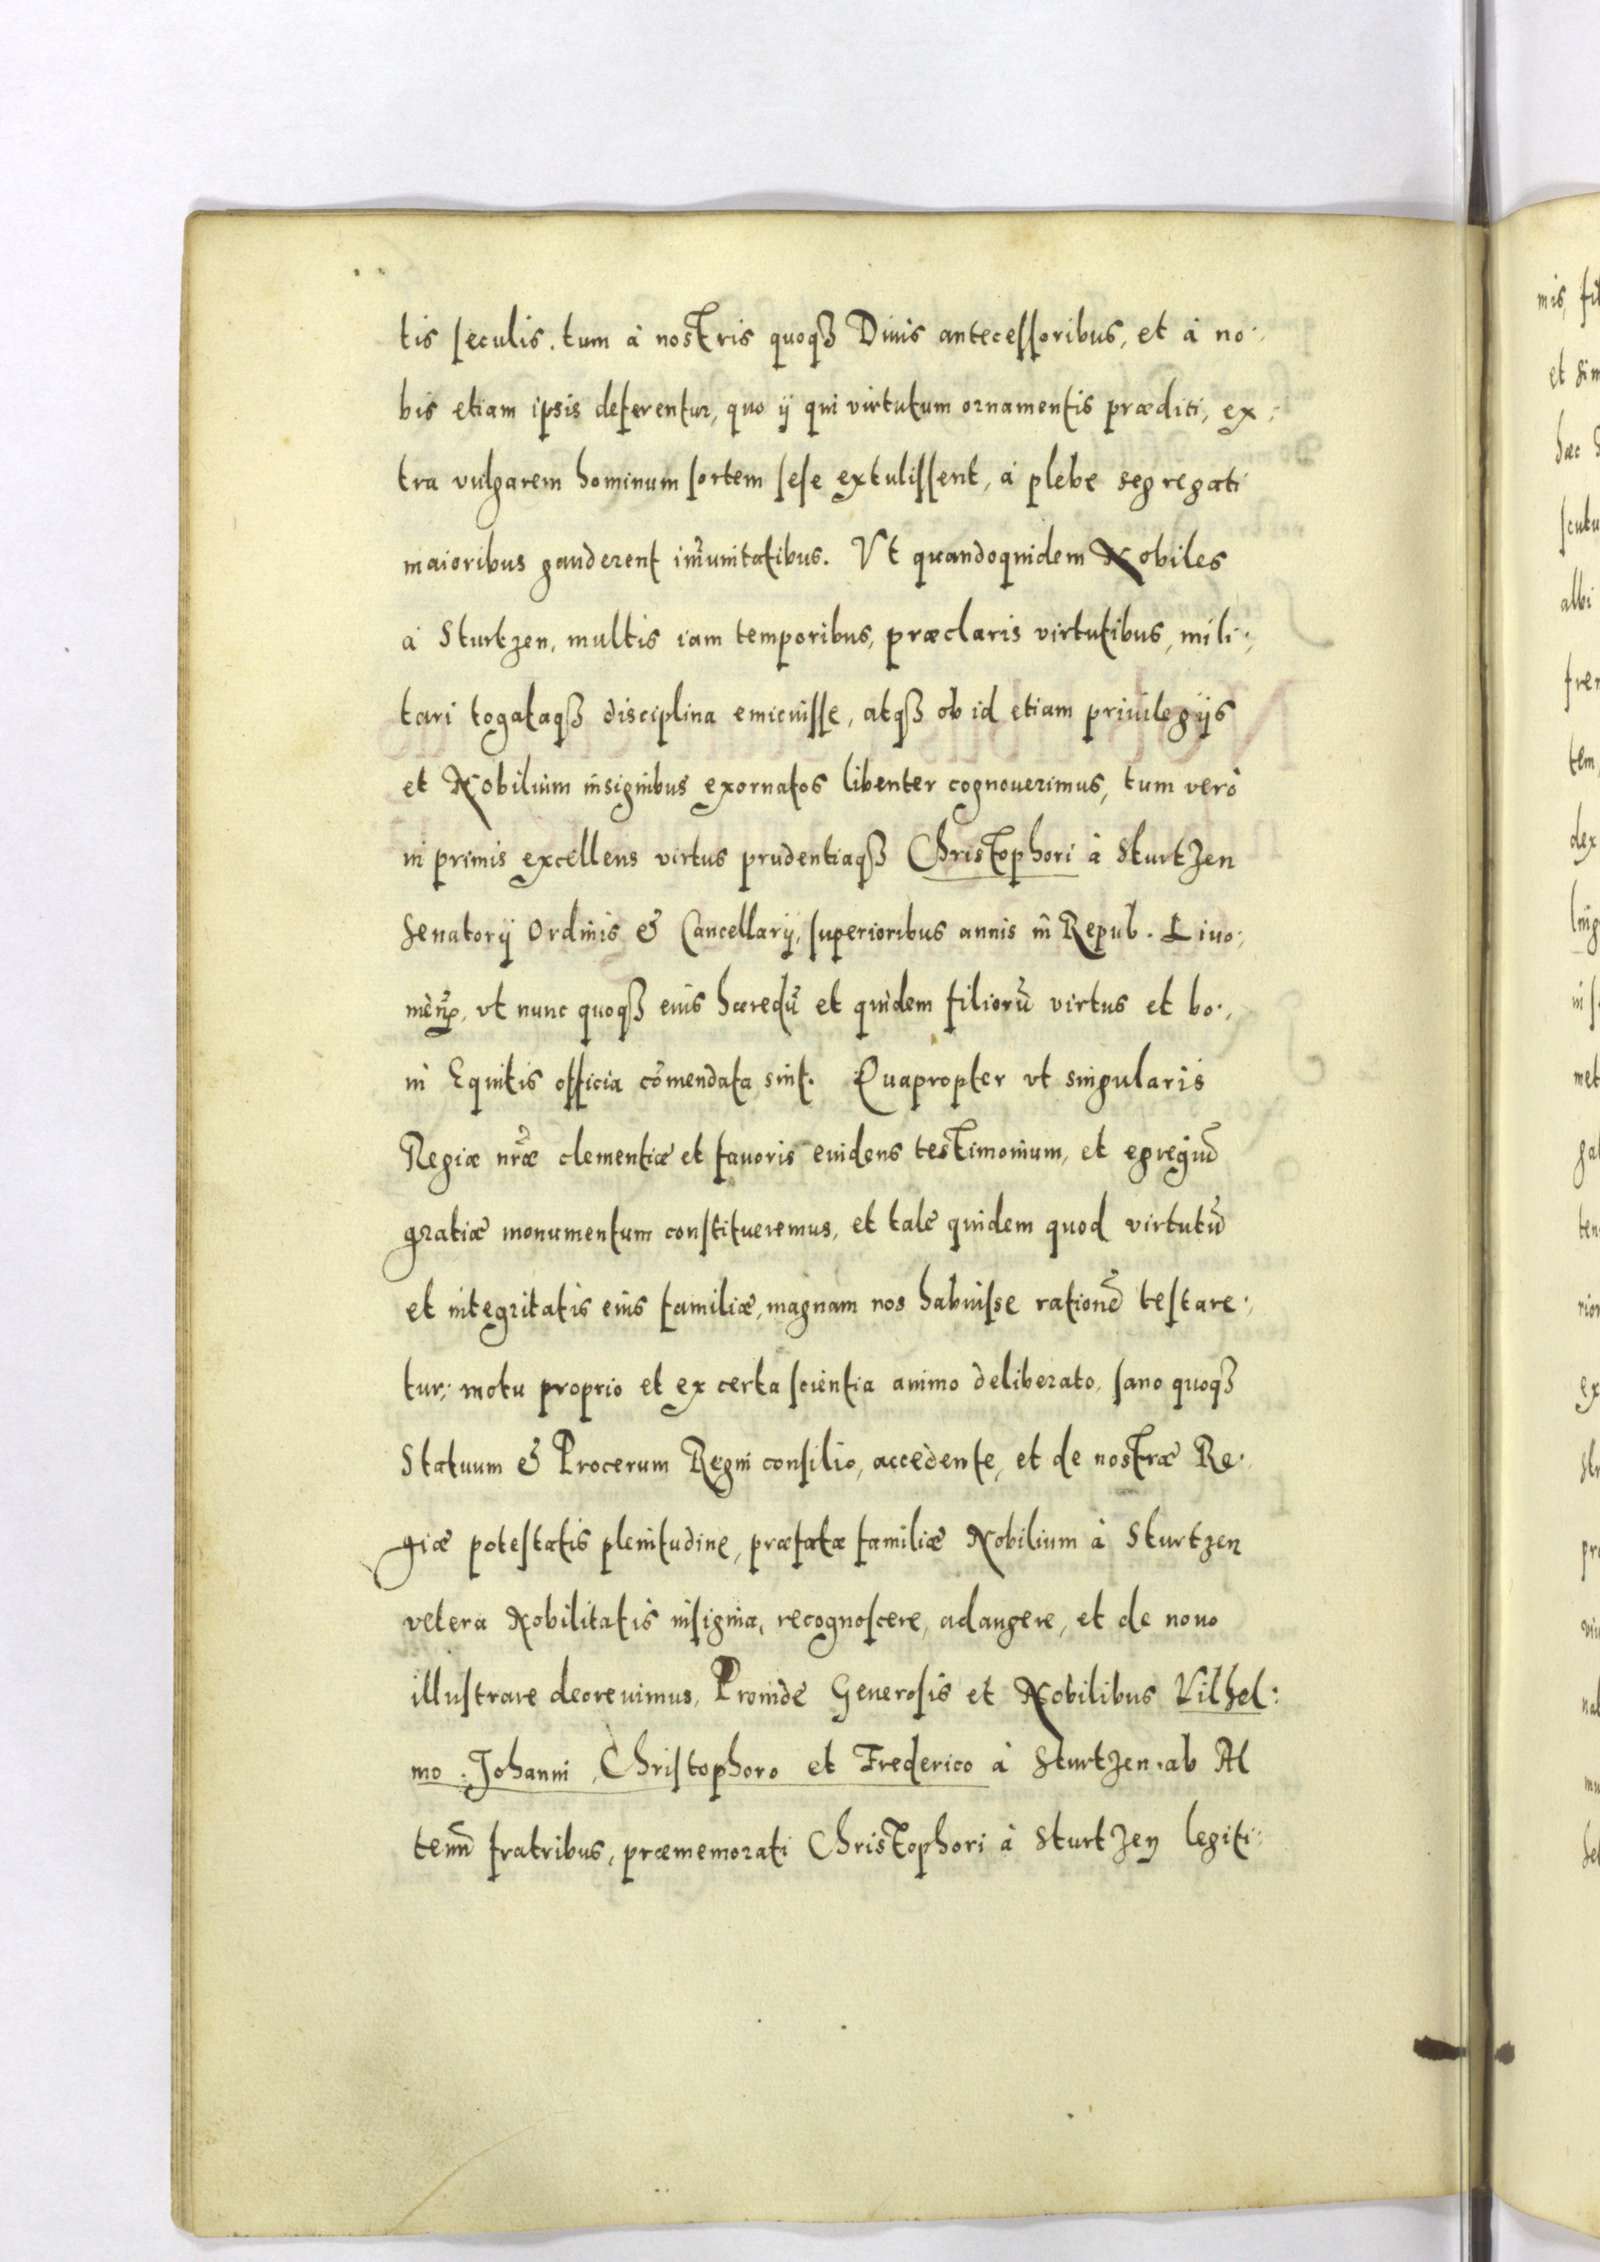 tis seculis, tum à nostris quoqȝ Divis antecessoribus, et à no:
bis etiam ipsis deferentur, quo ij qui virtutum ornamentis præditi, ex:
tra vulgarem hominum sortem sese extulissent, à plebe segregati
maioribus gauderent im̃unitatibus. Vt quandoquidem Nobiles
à Sturtzen, multis iam temporibus, præclaris virtutibus, mili:
tari togataqȝ disciplina emicuisse, atqȝ ob id etiam priuilegijs
et Nobilium insignibus exornatos libenter cognouerimus, tum verò
in primis excellens virtus prudentiaqȝ Christophori à Sturtzen
Senatorij Ordinis & Cancellarij, superioribus annis in Repub. Liuo:
vt nunc quoqȝ eius hæredũ et quidem filiorũ virtus et bo:
ni Equitis officia cõmendata sint. Quapropter vt singularis
Regiæ nr̃æ clementiæ et fauoris euidens testimonium, et egregiũ
gratiæ monumentum constitueremus, et tale quidem quod virtutũ
et integritatis eius familiæ, magnam nos habuisse rationẽ testare:
tur; motu proprio et ex certa scientia animo deliberato, sano quoqȝ
Statuum & Procerum Regni consilio, accedente, et de nostræ Re:
giæ potestatis plenitudine, præfatæ familiæ Nobilium à Sturtzen
vetera Nobilitatis insignia, recognoscere, adaugere, et de nouo
illustrare decreuimus, Proinde Generosis et Nobilibus Vilhel:
mo, Johanni, Christophoro et Frederico à Sturtzen, ab Al
fratribus, præmemorati Christophori à Sturtzen legiti:
mis,
et
hæc
albi
tem,
dex